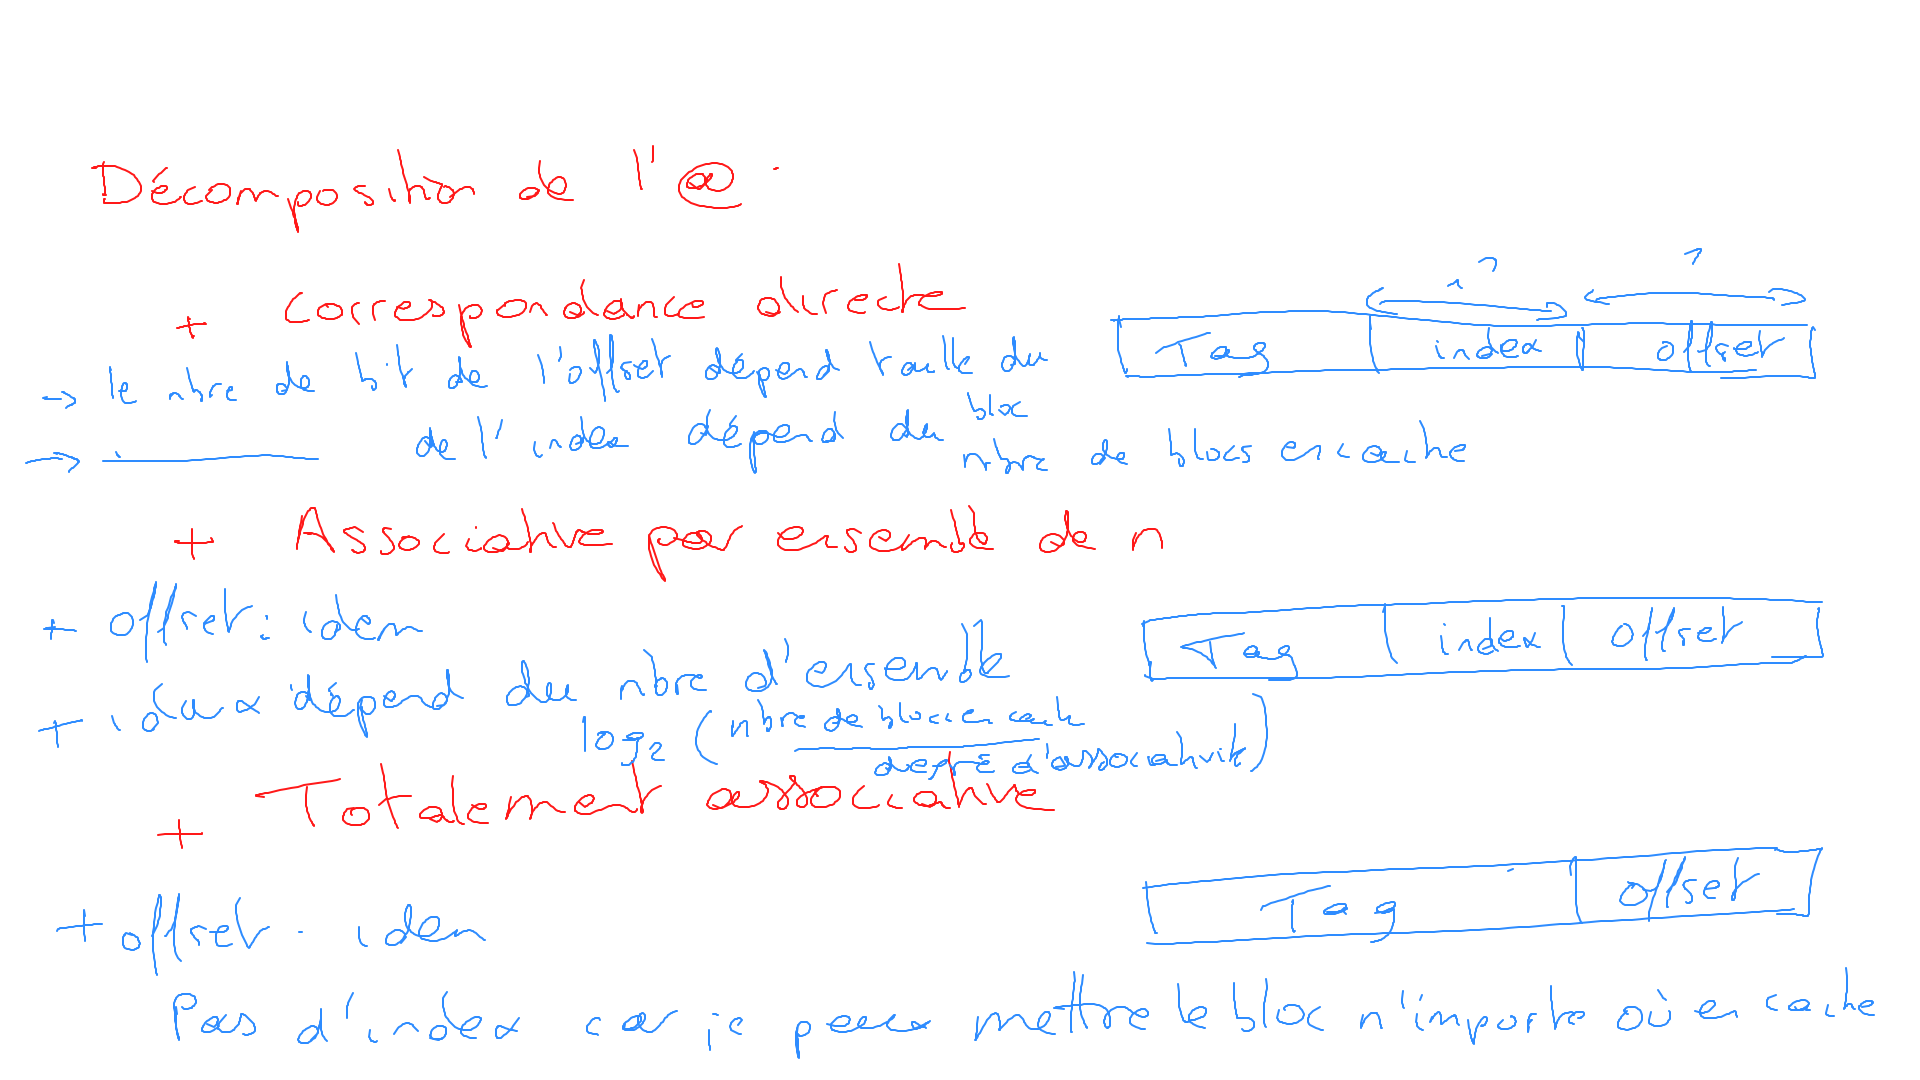 Décomposition de l'@.
+ Correspondance directe
? ?
Tag index offset
→ le nbre de bit de l'offset dépend taille du bloc
→ de l'index dépend du nbre de blocs en cache
+ Associative par ensemble de n
+ offset : idem
Tag index offset
+ dépend du nbre d'ensemble
log2 (nbre de blocs en cache / degré d'associativité)
+ Totalement associative
Tag offset
+ offset . idem
Pas d'index car je peux mettre le bloc n'importe où en cache